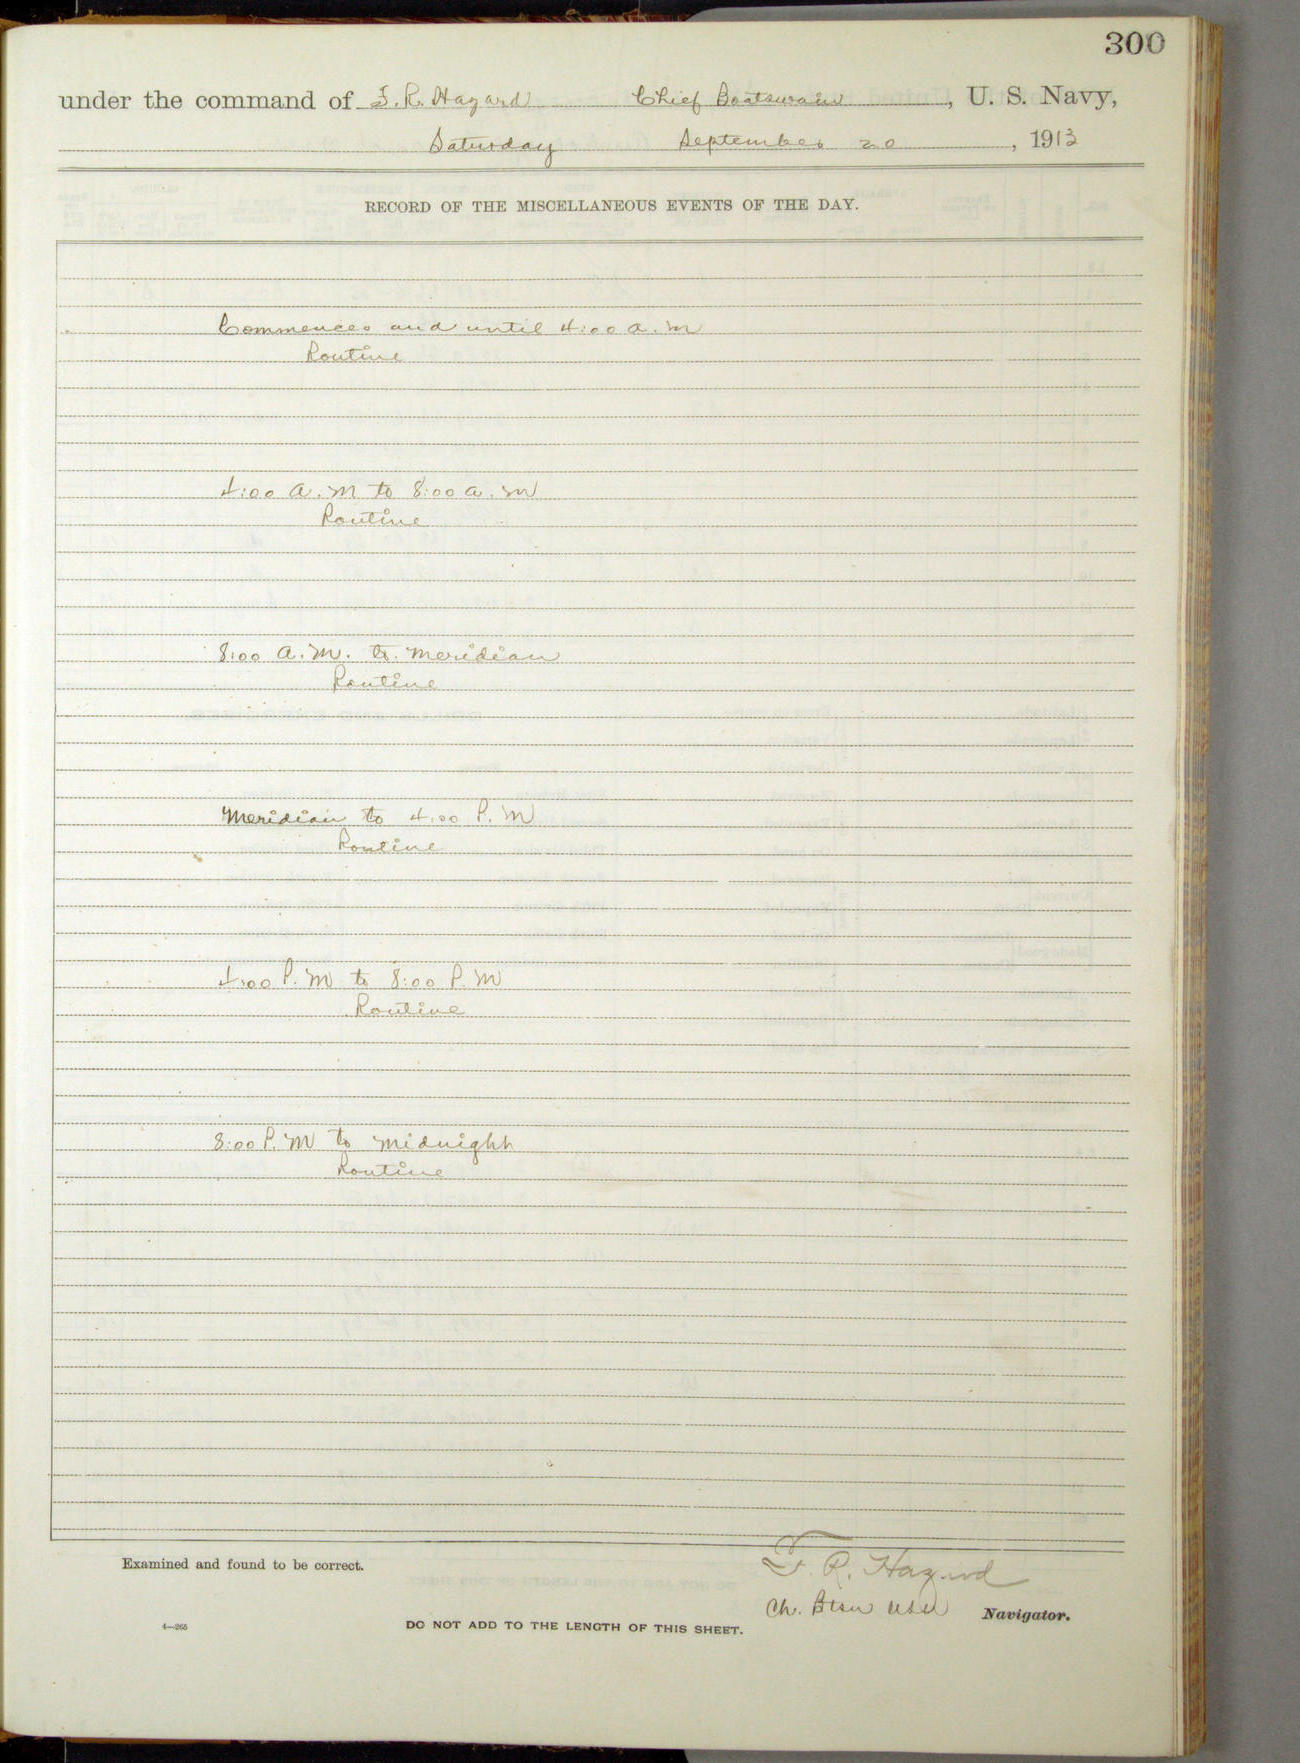 300
under the command of F. R. Hazard Chief Boatswain, U. S. Navy,
Saturday September 20, 1913
RECORD OF THE MISCELLANEOUS EVENTS OF THE DAY.
Commences and until 4:00 a.m
Routine
4:00 a.m to 8:00 a.m
Routine
8:00 a.m. to meridian
Routine
Meridian to 4:00 P.M
Routine
4:00 P.M to 8:00 P.M
Routine
8:00 P.M to midnight
Routine
Examined and found to be correct.
F. R. Hazard
Ch. Btsn USN Navigator.
4—265
DO NOT ADD TO THE LENGTH OF THIS SHEET.